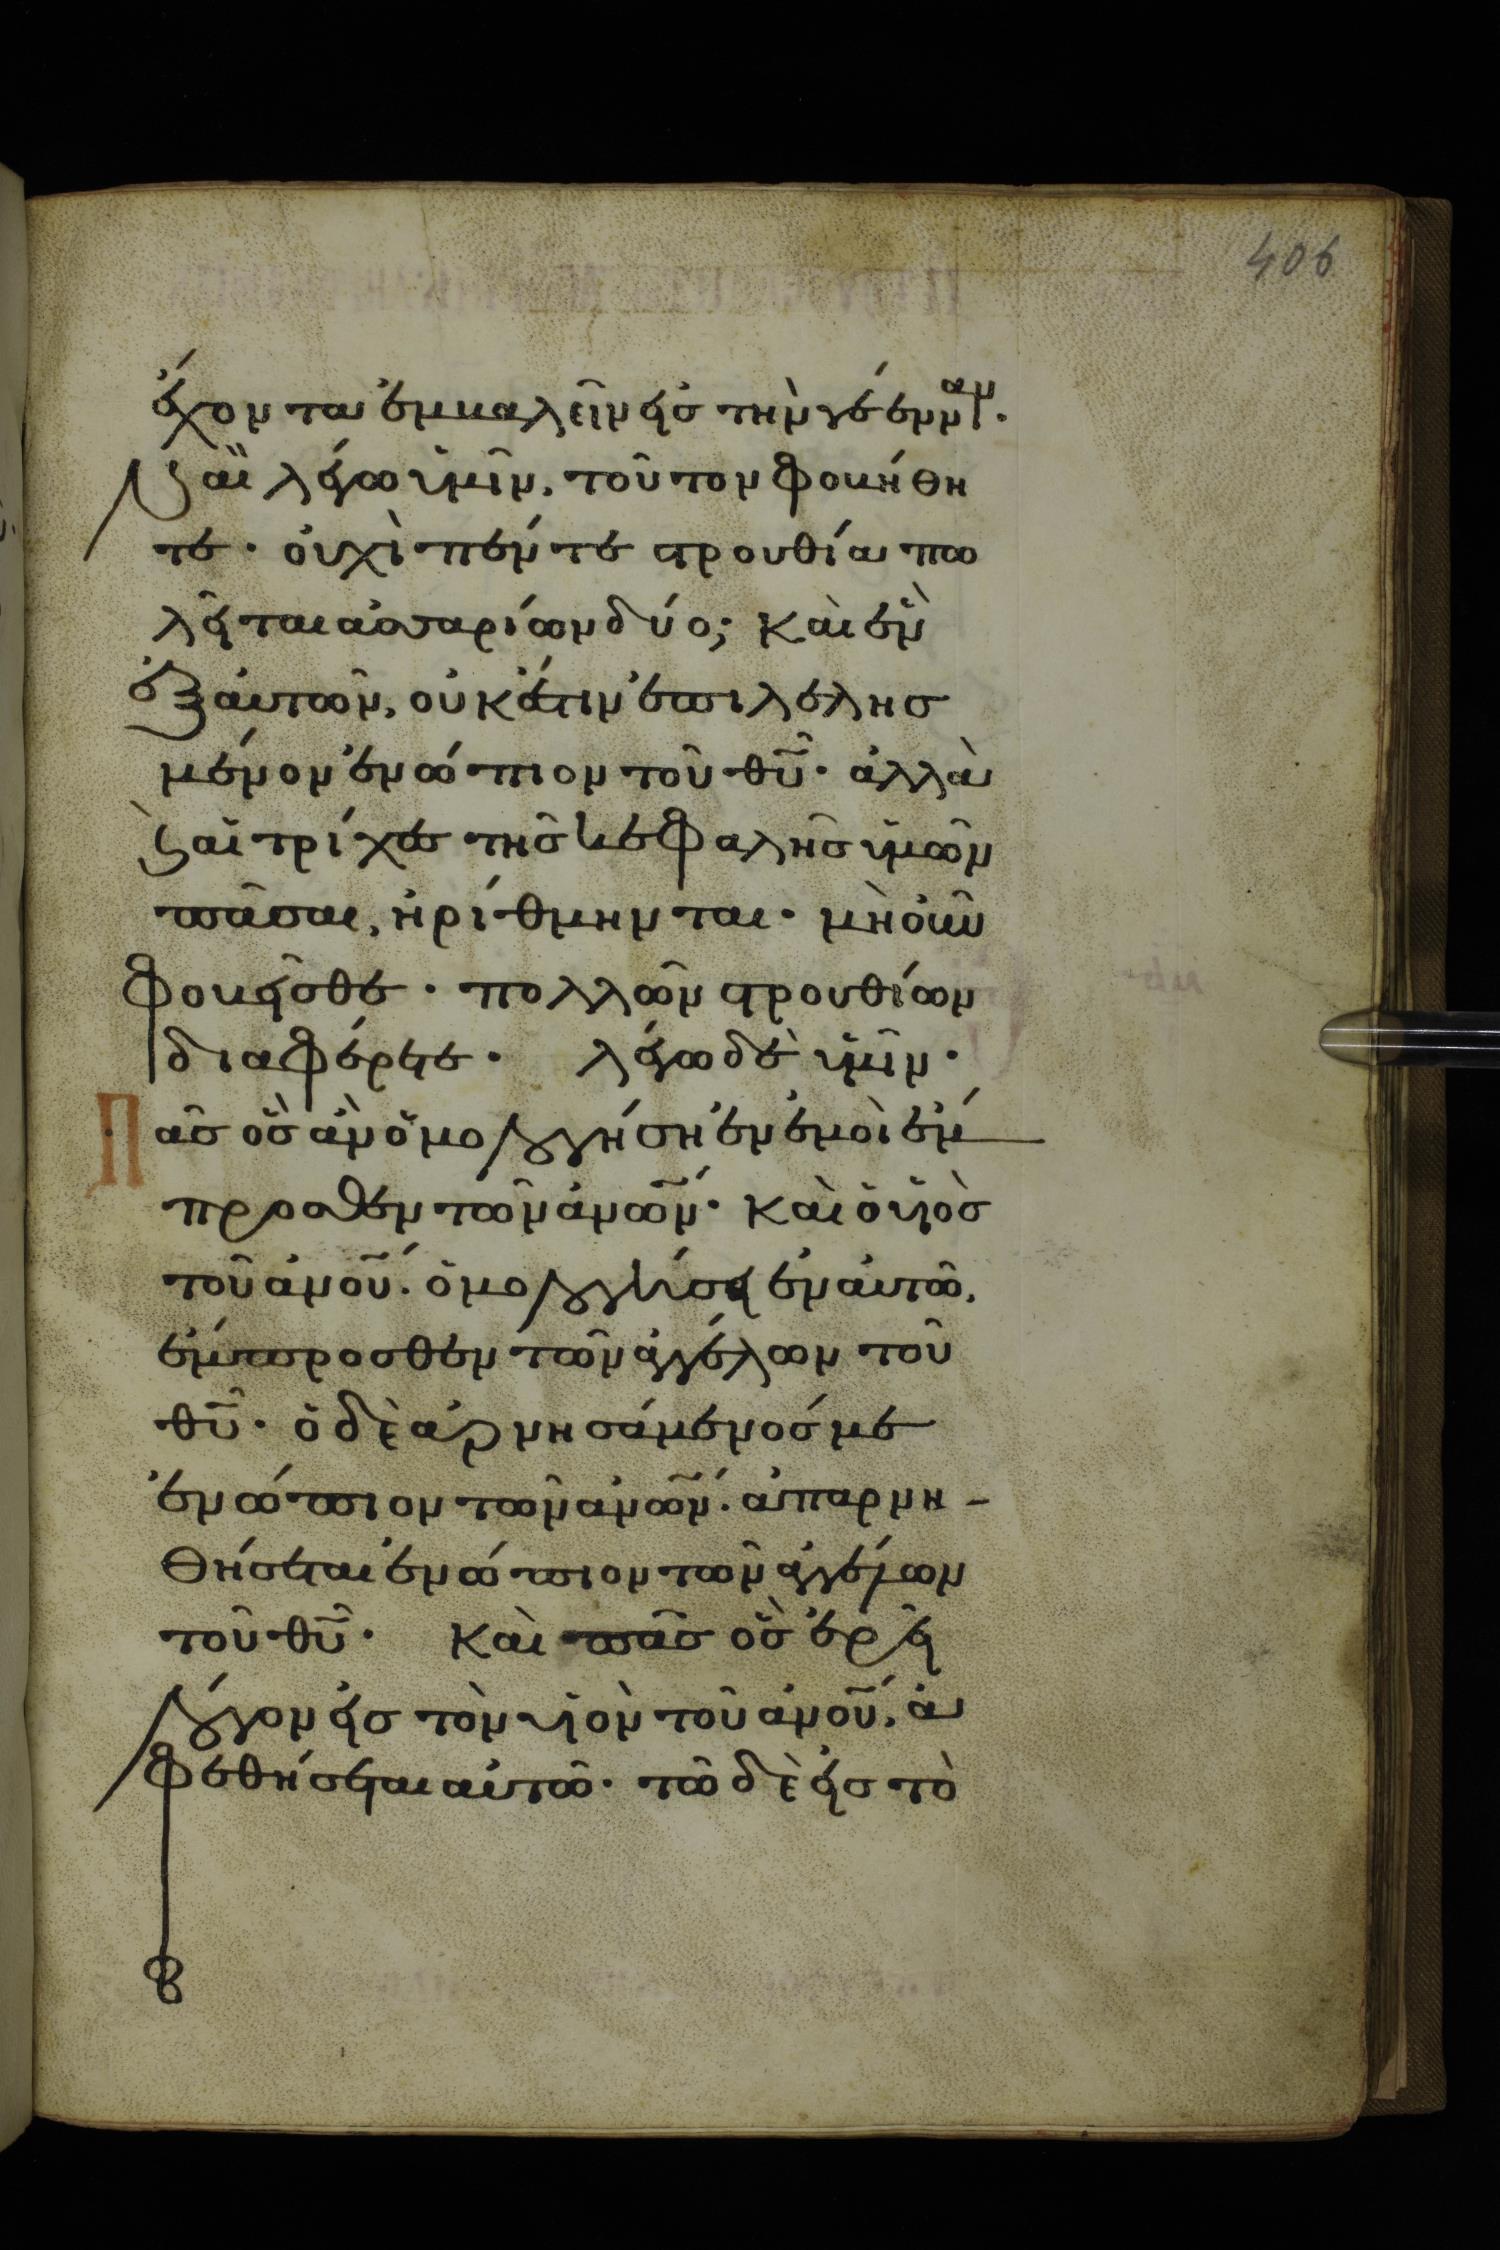 406
ἔχοντα ἐμβαλεῖν εἰς τὴν γέενναν·
ναὶ λέγω ὑμῖν, τοῦτον φοβήθη
τε· οὐχὶ πέντε στρουθία πω
λεῖται ἀσσαρίων δύο; καὶ ἓν
ἐξ αὐτῶν, οὐκ ἔστιν ἐπιλελησ
μένον ἐνώπιον τοῦ θῦ· ἀλλὰ
καὶ τρίχες τῆς κεφαλῆς ὑμῶν
πᾶσαι, ἠρίθμηνται· μὴ οὖν
φοβεῖσθε· πολλῶν στρουθίων
διαφέρετε· λέγω δὲ ὑμῖν·
Πᾶς ὃς ἂν ὁμολογήσῃ ἐν ἐμοὶ ἔμ
προσθεν τῶν ἀνῶν· καὶ ὁ υἱὸς
τοῦ ἀνοῦ· ὁμολογήσει ἐν αὐτῶ,
ἔμπροσθεν τῶν ἀγγέλων τοῦ
θῦ· ὁ δὲ ἀρνησάμενός με
ἐνώπιον τῶν ἀνῶν· ἀπαρνη-
θήσεται ἐνώπιον τῶν ἀγγέλων
τοῦ θῦ· καὶ πᾶς ὃς ἐρεῖ
λόγον εἰς τὸν υἱὸν τοῦ ἀνοῦ, ἀ
φεθήσεται αὐτῶ· τῶ δὲ εἰς τὸ